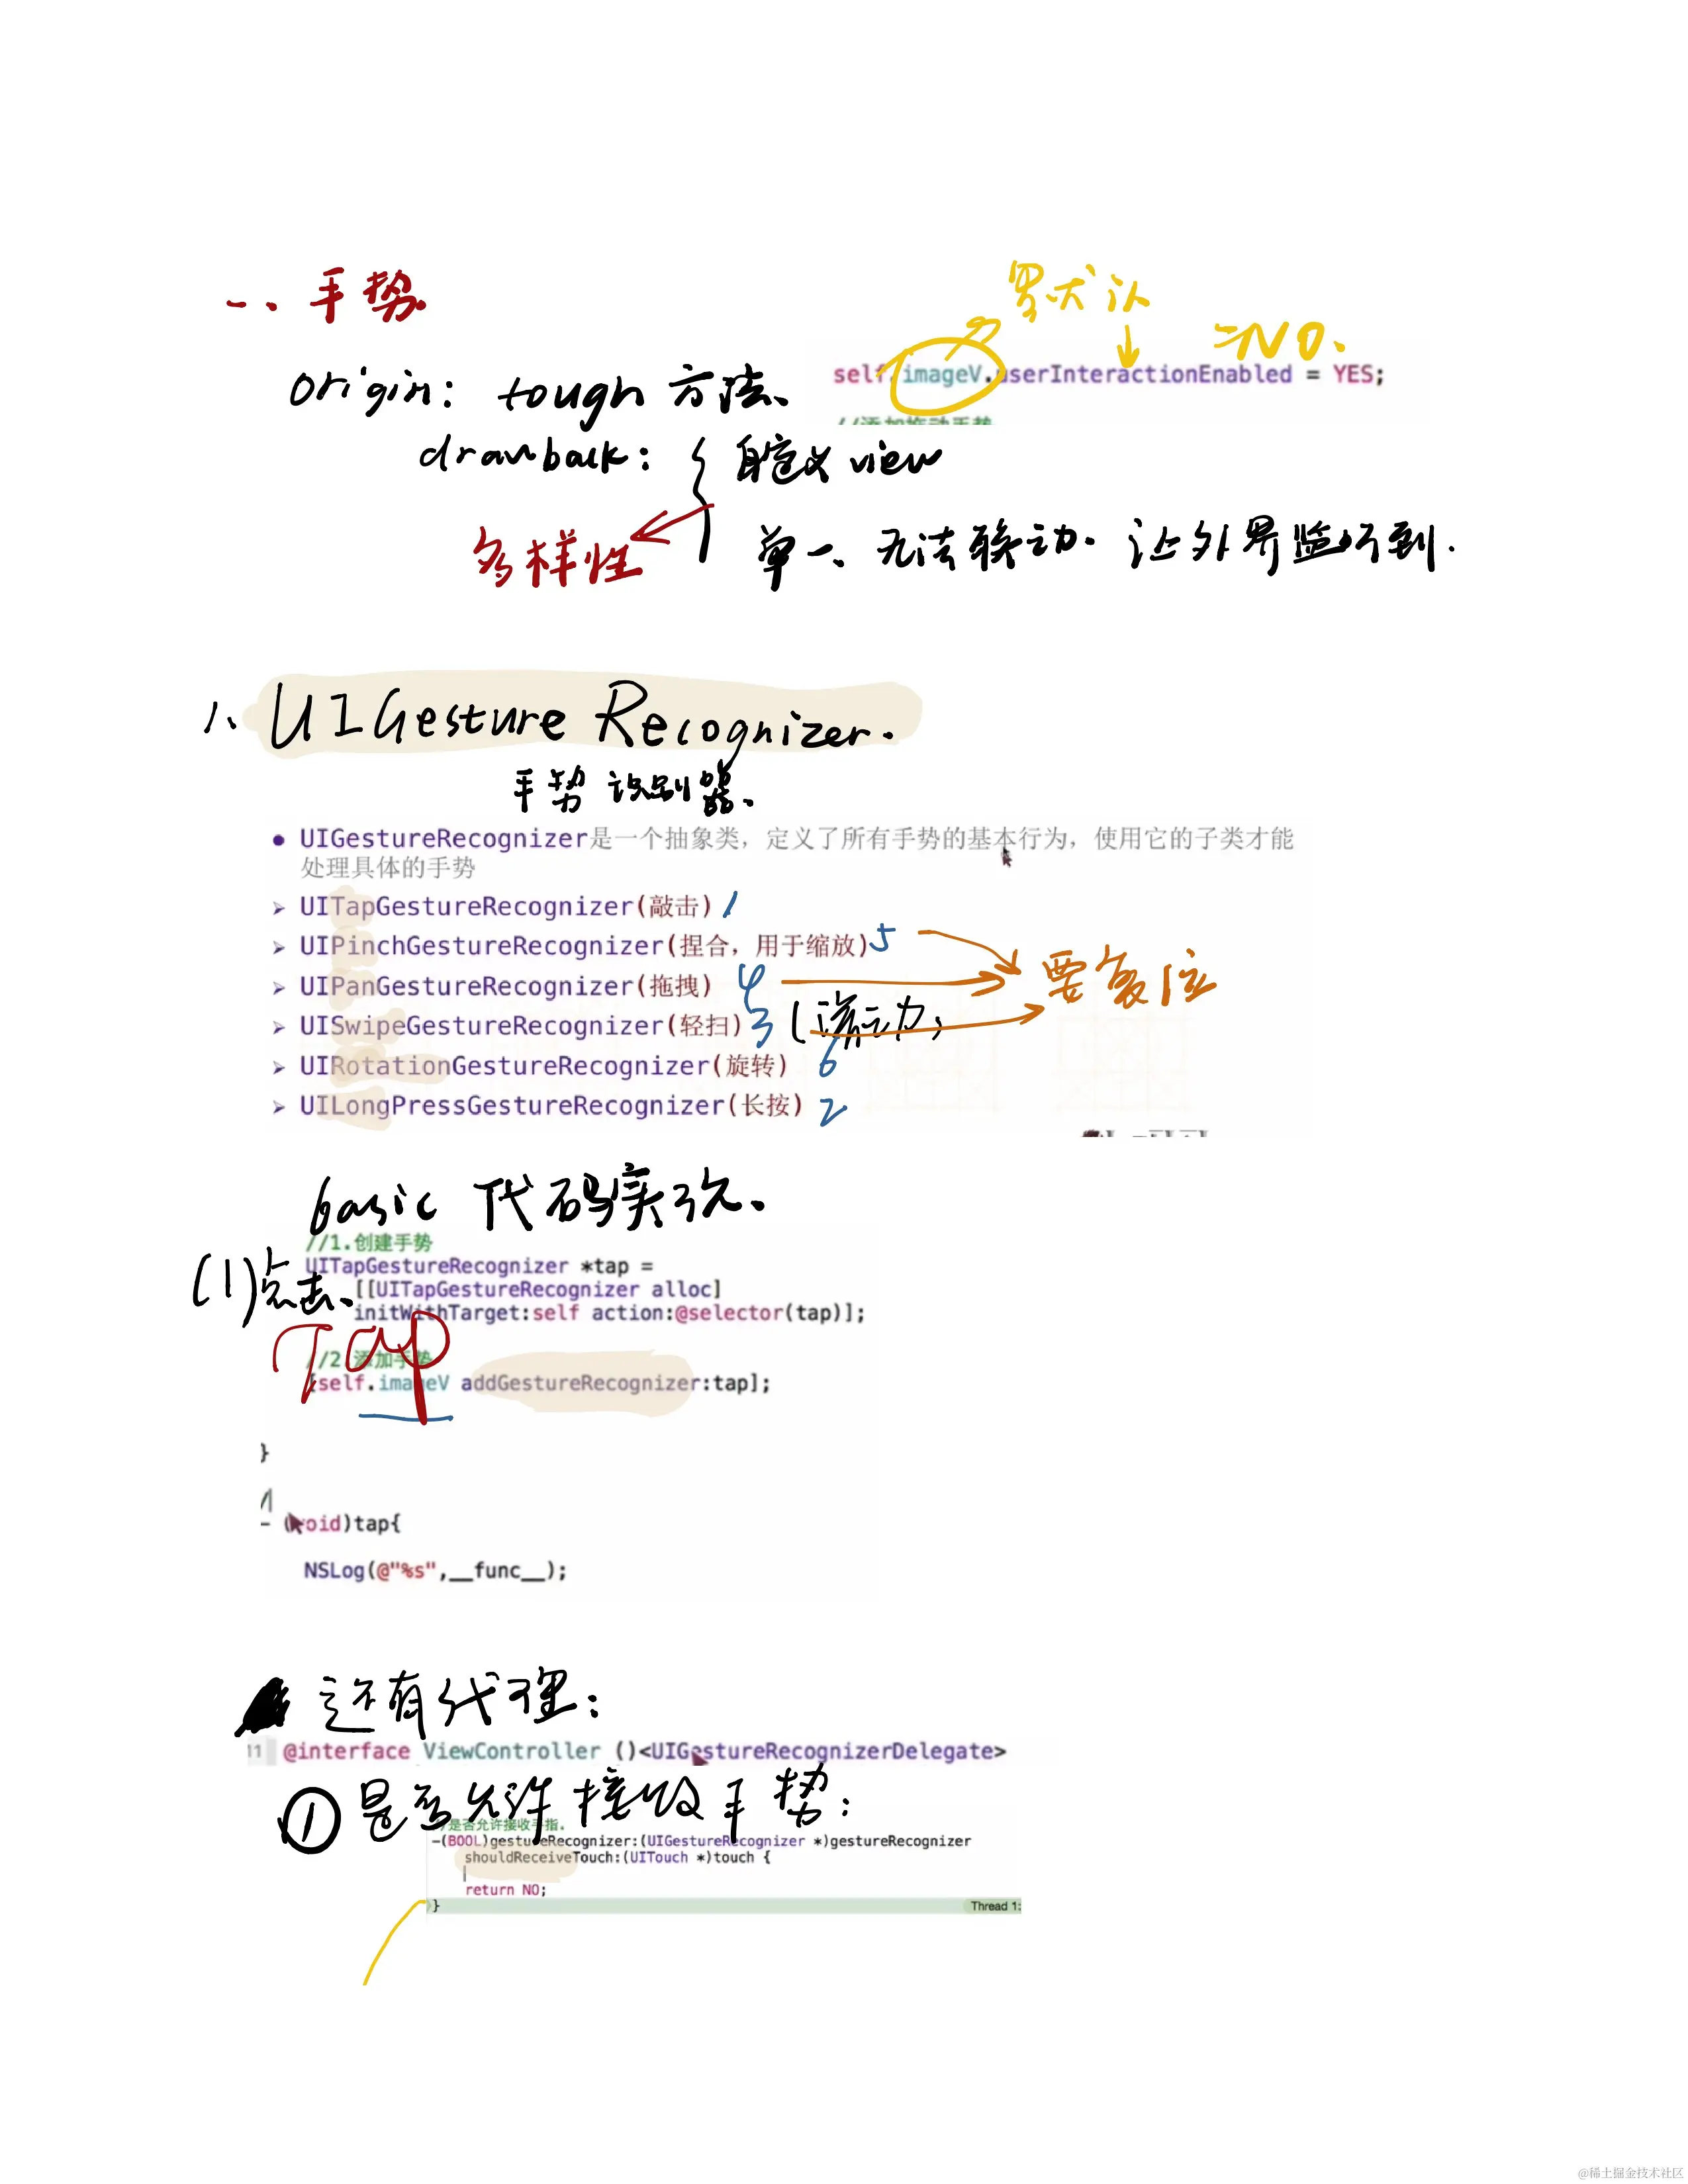 一、手势
默认
=NO.
origin: tough 方法、
self.imageV.userInteractionEnabled = YES;
drawback: { 自定义 view
多样性
单一、无法联动. 让外界监听到.
1、UIGesture Recognizer.
手势识别器、
• UIGestureRecognizer是一个抽象类，定义了所有手势的基本行为，使用它的子类才能
处理具体的手势
➢ UITapGestureRecognizer(敲击) 1
➢ UIPinchGestureRecognizer(捏合，用于缩放) 5
要复位
➢ UIPanGestureRecognizer(拖拽) 4
➢ UISwipeGestureRecognizer(轻扫) 3
➢ UIRotationGestureRecognizer(旋转) 6
➢ UILongPressGestureRecognizer(长按) 2
basic 代码实现、
//1.创建手势
(1)点击、
UITapGestureRecognizer *tap =
[[UITapGestureRecognizer alloc]
initWithTarget:self action:@selector(tap)];
Tap
//2.添加手势
[self.imageV addGestureRecognizer:tap];
}
- (void)tap{
NSLog(@"%s",__func__);
还有代理:
11 @interface ViewController ()<UIGestureRecognizerDelegate>
① 是否允许接收手势:
是否允许接收手指.
-(BOOL)gestureRecognizer:(UIGestureRecognizer *)gestureRecognizer
shouldReceiveTouch:(UITouch *)touch {
return NO;
}
Thread 1:
@稀土掘金技术社区